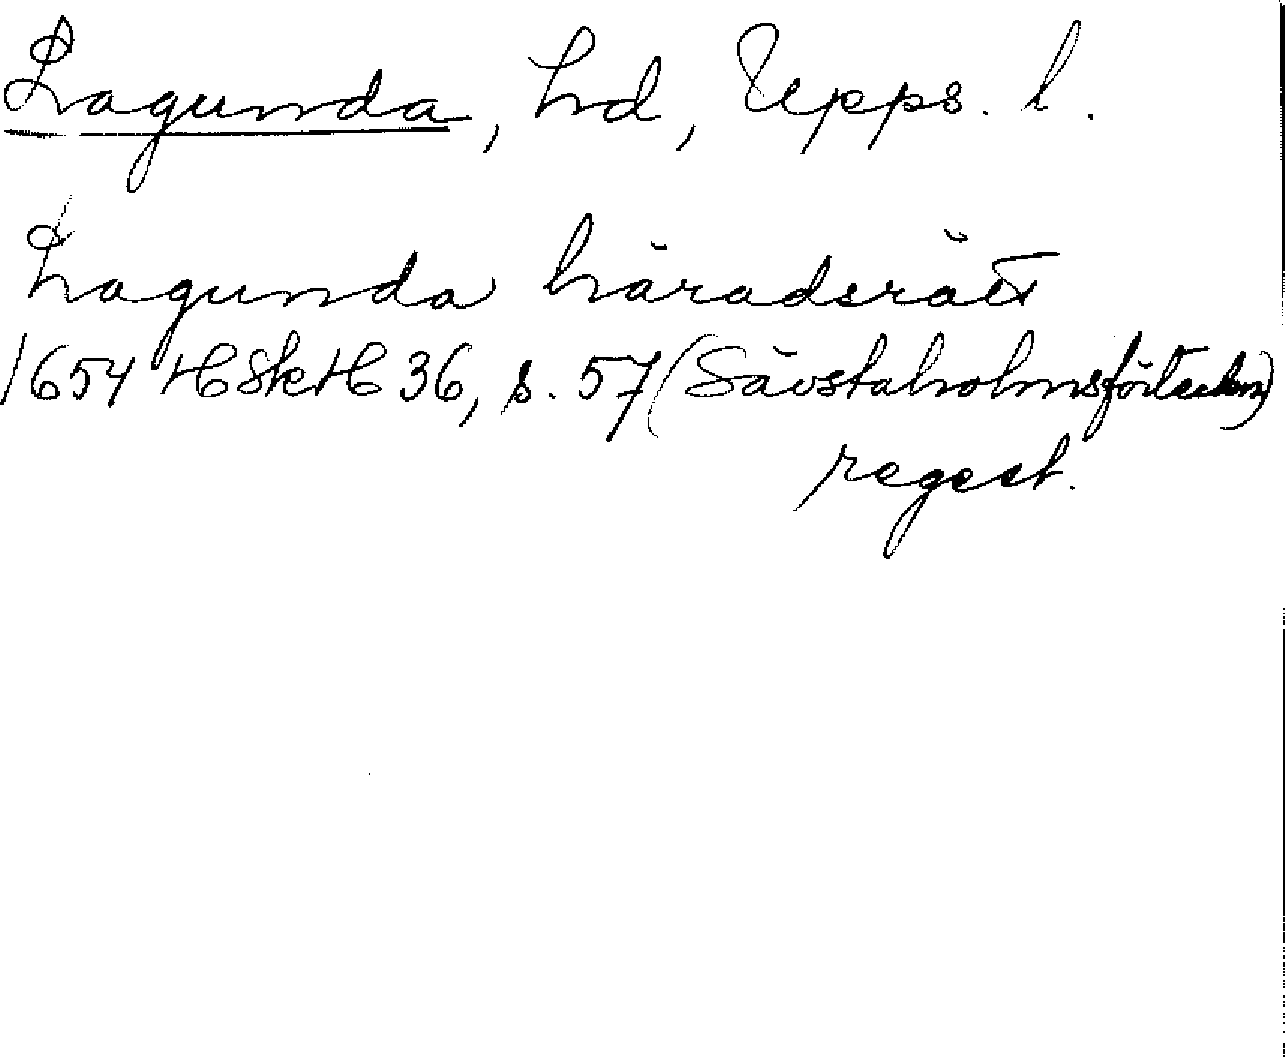 Lagunda, hd, Upps. l.
Lagunda häradsrätt
1654 HSkH 36, s. 57 (Sävstaholmsförteckn)
regest.